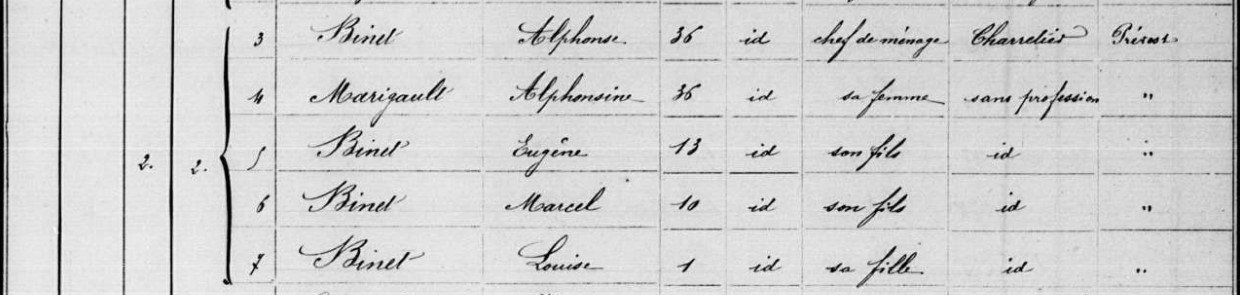 3 Binet Alphonse 36 id chef de ménage Charretier Prévost
4 Marigault Alphonsine 36 id sa femme sans profession "
2. 2. 5 Binet Eugène 13 id son fils id "
6 Binet Marcel 10 id son fils id "
7 Binet Louise 1 id sa fille id "